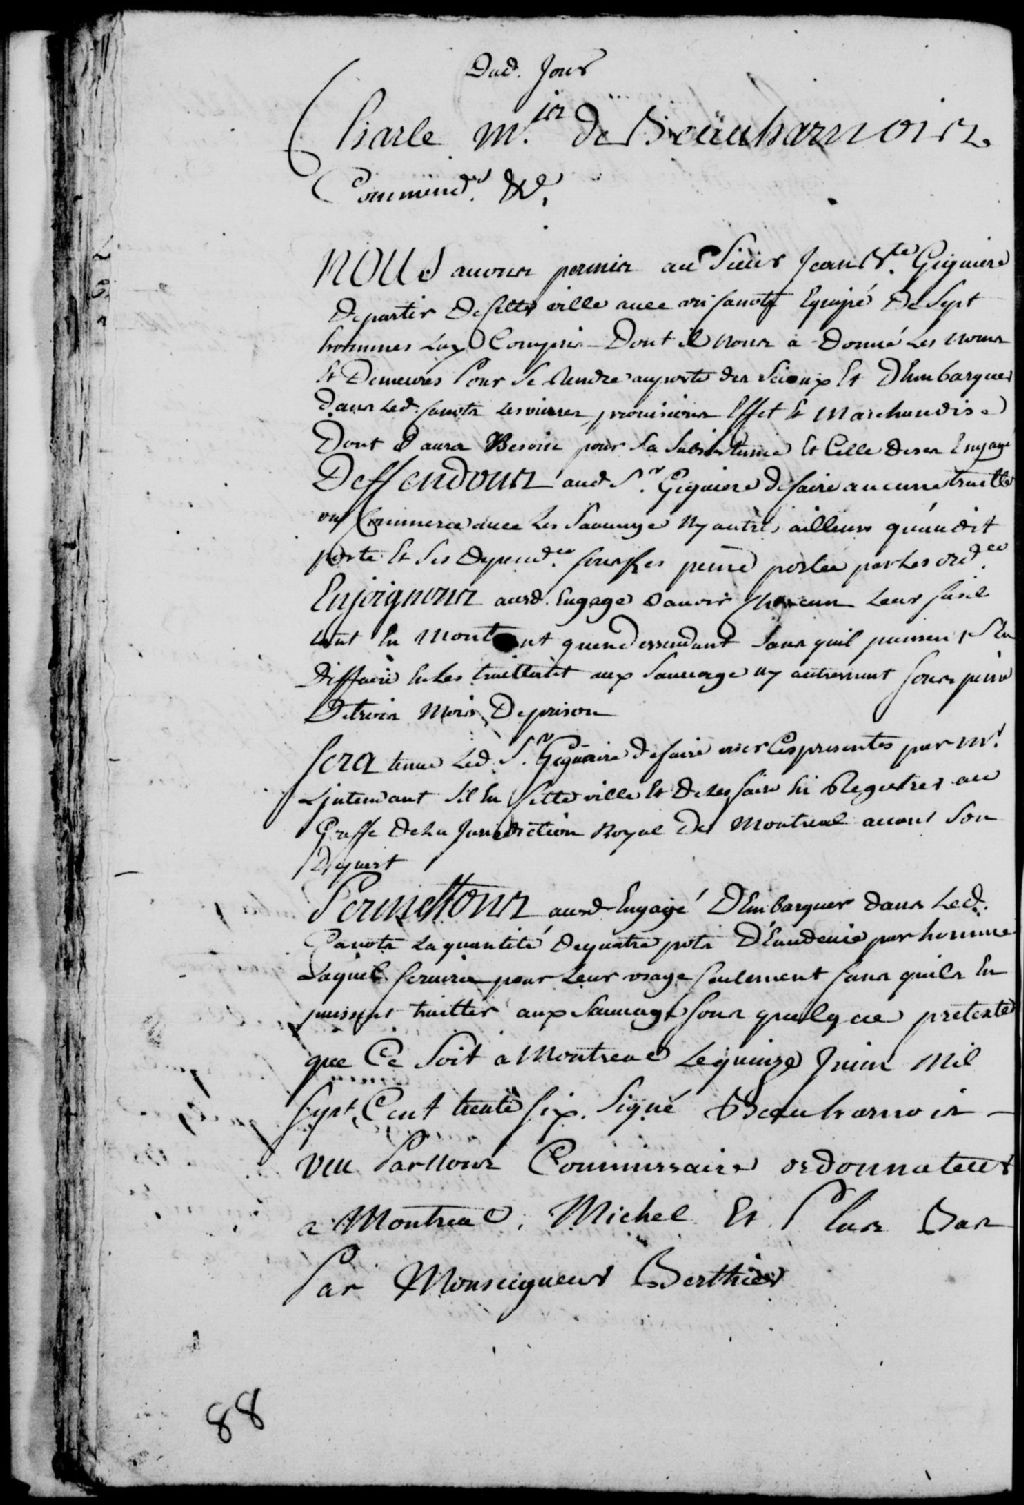 Dud. Jour
Charle m.is de Boüuharnois
Commend.r &c.
NOUS avons permis au Sieur Jean Bt.e Giguiere
de partir de Cette ville avec un Canott Equipé de Sept
hommes Luy Compris Dont il nous à Donné Les noms
Et Demeures Pour Se Rendre au poste des Scioux Et D'Embarquer
Dans Led. Canots Les vivres provisions Effet & Marchandise
Dont il aura Besoin pour Sa Subsistence Et Celle de ses Engagé
Deffendons aud. S.r Giguiere de faire aucune traitte
ny Commerce avec Les Sauvage ny autres ailleurs qu'audit
poste Et Ses Depend.ce sous les peine portée par Les ord.ce
Enjoignons ausd. Engagé D'avoir Chacun Leur fusil
tant En Montant quen dessendant Sans quil puissent S'En
deffaire En Les traittantet aux Sauvage ny autrement Sous peine
De trois Mois De prison
Sera tenue Led. S.r Giguiere de faire viser Ces presentes par m.r
Lintendant S'il En Cette ville Et de Les faire En Registrer au
Greffe De La Jurisdiction Royal De Montreal avant Son
Depart
Permettons ausd. Engagé D'Embarquer dans Led.
Canots La quantité de quatre pots D'Eaudevie par homme
Laquel Servira pour Leur usage Seulement Sans quils En
puissent traitter aux Sauvage Sous quelque pretexte
que Ce Soit a Montreal Le quinze Juin Mil
Sept Cent trente Six. Signé Beauharnois
Veu Par nous Commissaire ordonnateur
a Montreal. Michel Et Plus Bas
Par Monseigneur Berthier
88